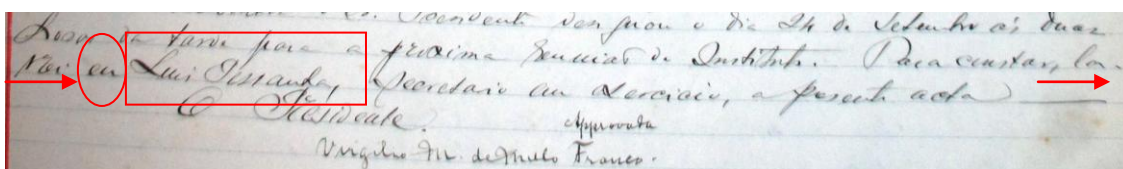 Presidente designou o dia 24 de Setembro ás duas
horas da tarde para a proxima reunião do Instituto. Para constar, la-
vrei eu Luis Pessanha, secretario em exercicio, a presente acta
O Presidente.
Approvada
Virgilio M. de Mello Franco.